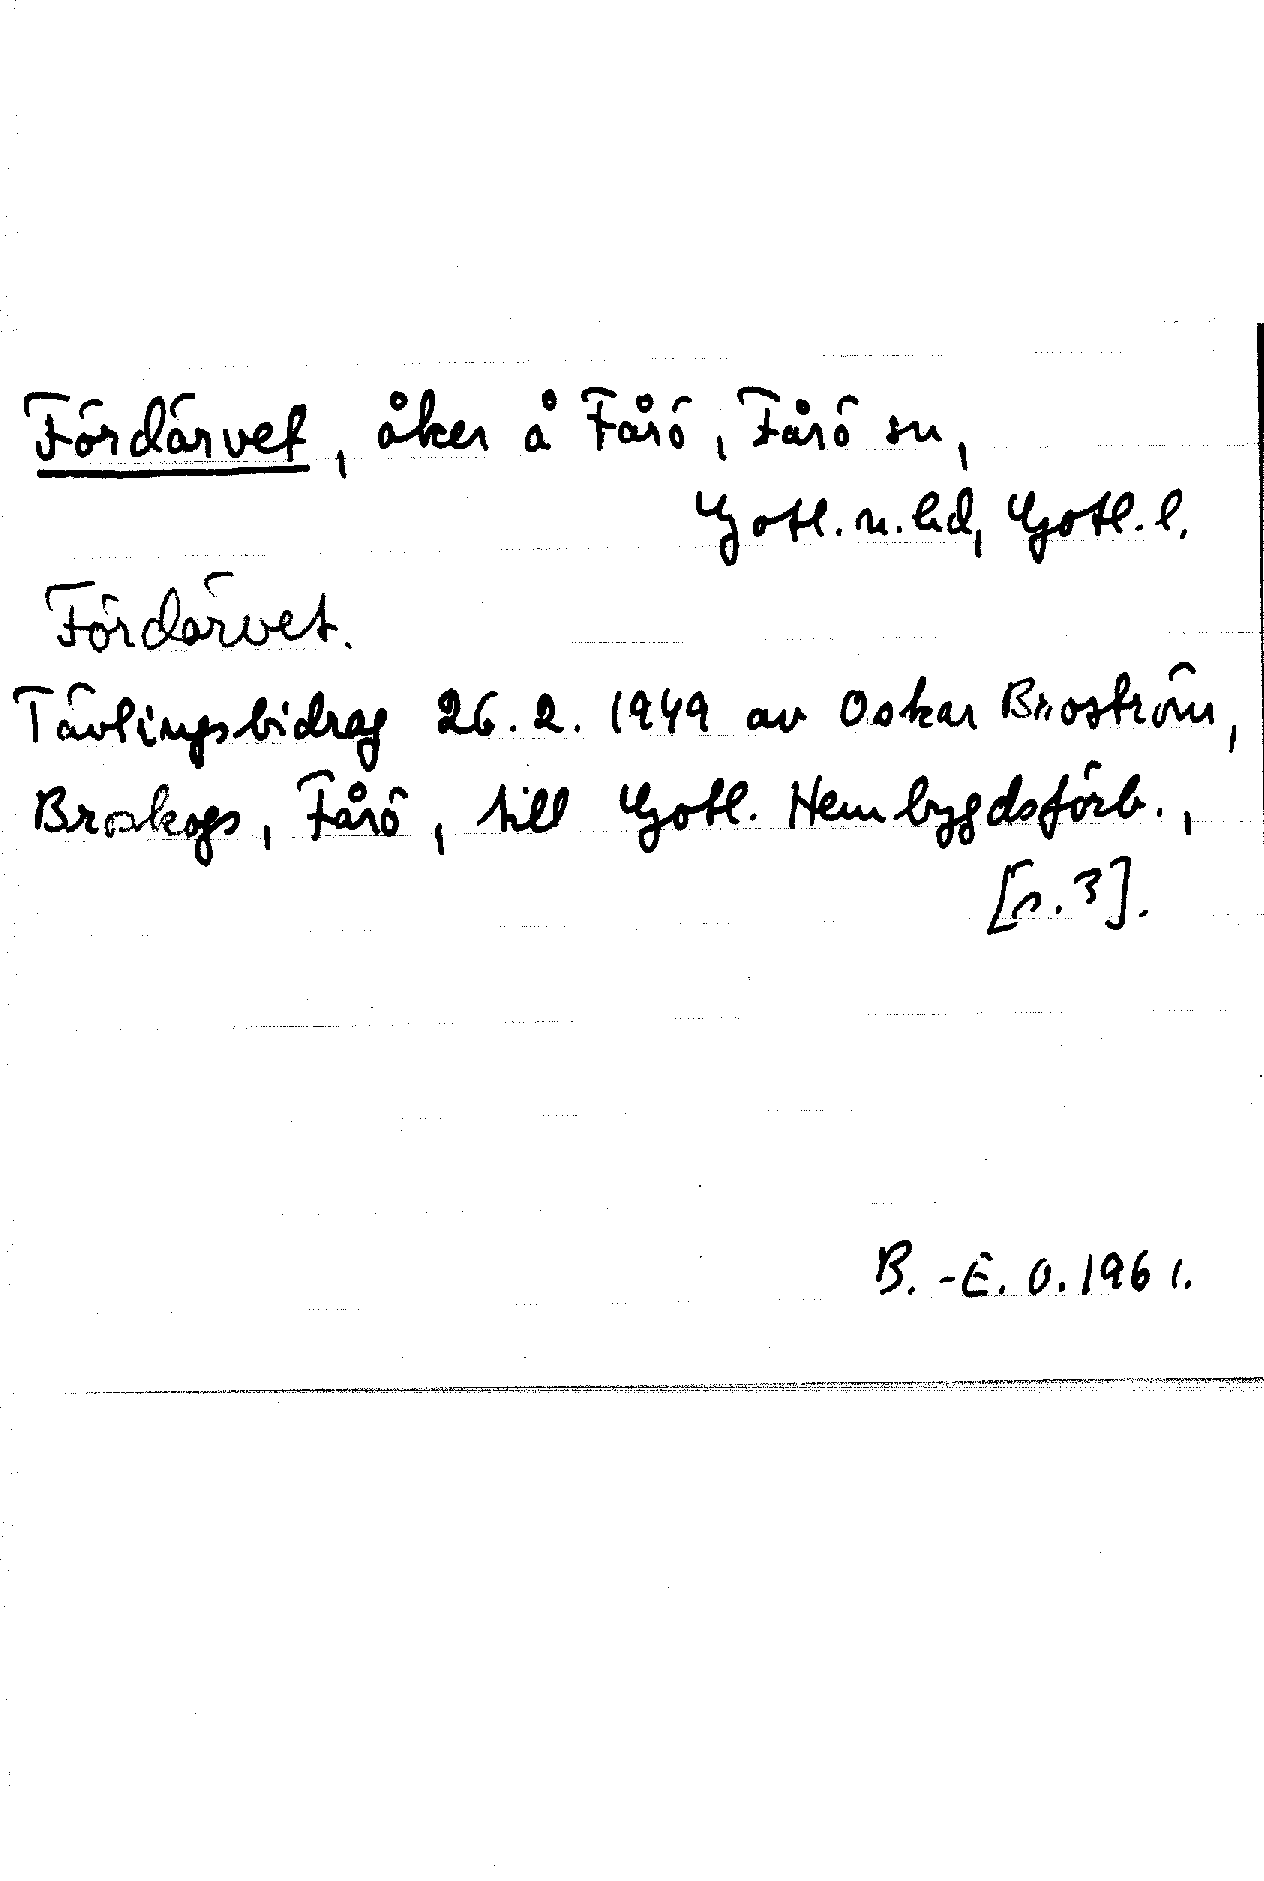 Fördärvet, åker å Fårö, Fårö sn,
Gotl. n. hd, Gotl. l.
Fördärvet.
Tävlingsbidrag 26. 2. 1949 av Oskar Broström,
Broskogs, Fårö, till Gotl. Hembygdsförb.,
[s. 3].
B.-E. O. 1961.